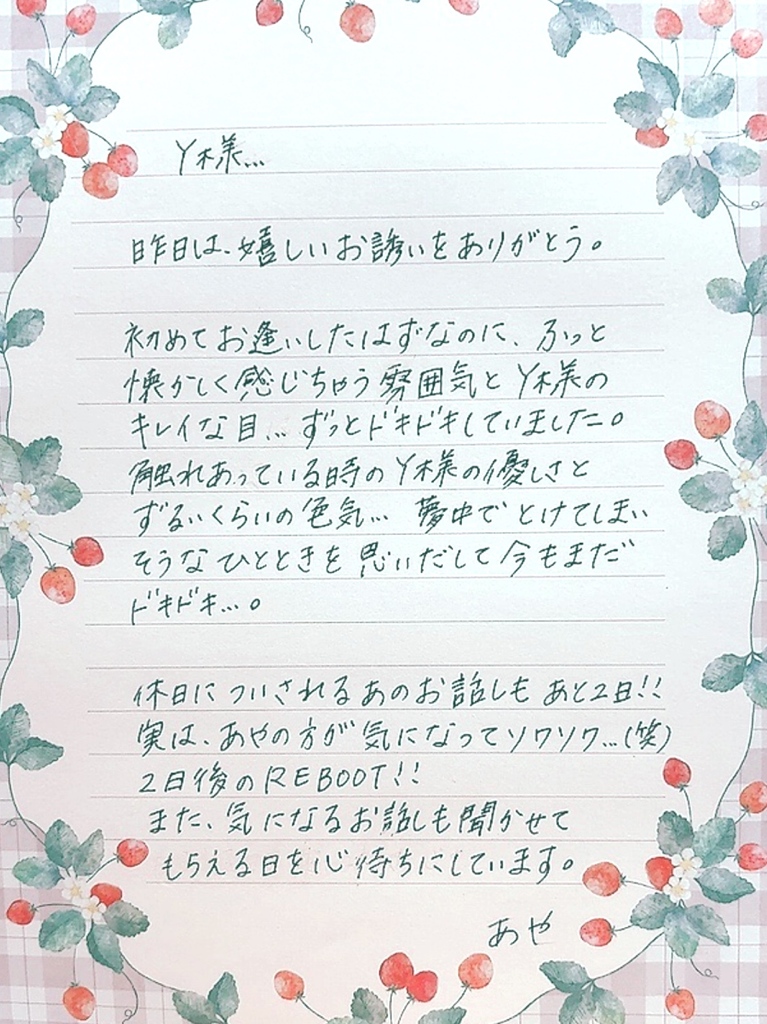 Y様…
昨日は、嬉しいお誘いをありがとう。
初めてお逢いしたはずなのに、ふっと
懐かしく感じちゃう雰囲気とY様の
キレイな目… ずっとドキドキしていました。
触れあっている時のY様の優しさと
ずるいくらいの色気… 夢中でとけてしまい
そうなひとときを思いだして今もまだ
ドキドキ…。
休日についされるあのお話しもあと2日!!
実は、あやの方が気になってソワソワ…(笑)
2日後のREBOOT!!
また、気になるお話しも聞かせて
もらえる日を心待ちにしています。
あや